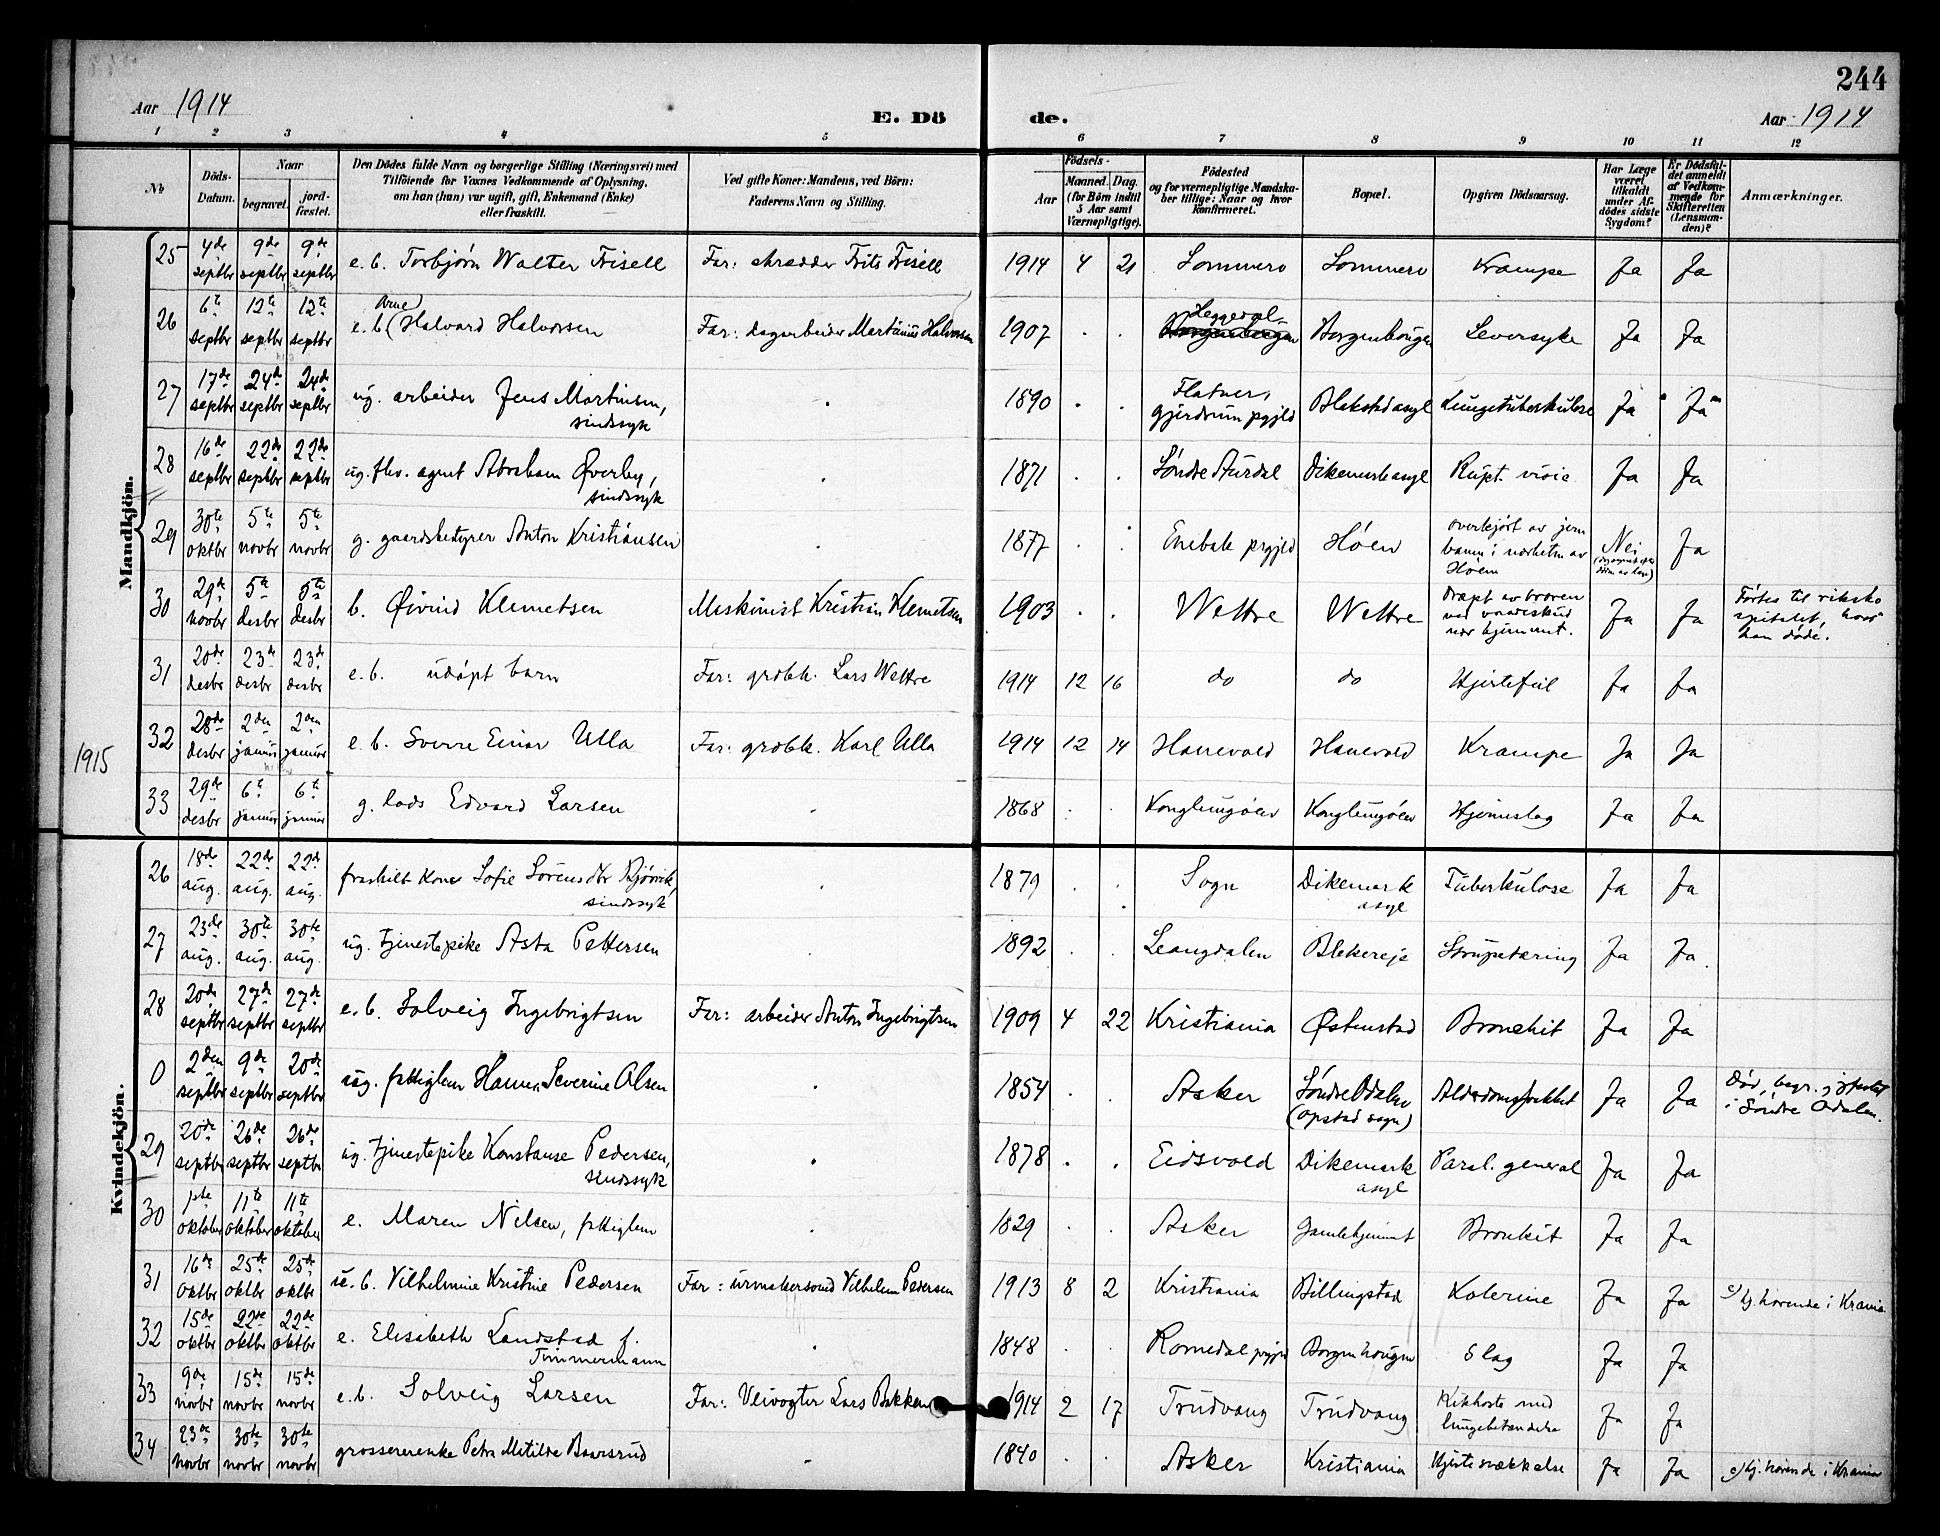 244
Aar 1914
E. Dö de.
Aar 1914
1 2 3 4 5 6 7 8 9 10 11 12
No
Döds-Datum.
Naar
begravet.
jord-fæstet.
Den Dödes fulde Navn og borgerlige Stilling (Næringsvei) med
Tilföiende for Voxnes Vedkommende af Oplysning,
om han (hun) var ugift, gift, Enkemand (Enke)
eller fraskilt.
Ved gifte Koner: Mandens, ved Börn:
Faderens Navn og Stilling.
Födsels-
Aar
Maaned. Dag.
(for Börn indtil
5 Aar samt
Værnepligtige).
Födested
og for værnepligtige Mandska-
ber tillige: Naar og hvor
konfirmeret.
Bopæl.
Opgiven Dödsaarsag.
Har Læge
været
tilkaldt
under Af-
dödes sidste
Sygdom?
Er Dödsfal-
det anmeldt
af Vedkom-
mende for
Skifteretten
(Lensman-
den)?
Anmærkninger.
Mandkjön.
25 4de septbr 9de septbr 9de septbr e. b. Torbjørn Walter Frisell Far: skrædder Frits Frisell 1914 4 21 Sommero Sommero Krampe Ja Ja
26 6te septbr 12te septbr 12te septbr e. b. (Arne) Halvard Halvorsen Far: dagarbeider Martinius Halvorsen 1907 . . Borgenhougen Borgenhougen Leversyke Ja Ja
27 17de septbr 24de septbr 24de septbr ug. arbeider Jens Martinsen, sindssyk . 1890 . . Flatner, Gjerdrum prgjld Blakstad asyl Lungetuberkulose Ja Ja
28 16de septbr 22de septbr 22de septbr ug. fhv. agent Abraham Øverby, sindssyk . 1871 . . Søndre Aurdal Dikemark asyl Rupt. Ja Ja
29 30te oktbr 5te novbr 5te novbr g. gaardsbestyrer Anton Kristiansen . 1877 . . Enebak prgjld Høen overkjørt av jern banen i nærheten av Høen Nei Ja
30 29de novbr 5te desbr 5te desbr b. Øivind Klemetsen Maskinist Kristian Klemetsen 1903 . . Wettre Wettre Dræpt av broren ved vaadeskud nær hjemmet. Ja Ja Førtes til riksho spitalet, hvor han døde.
31 20de desbr 23de desbr 23de desbr e. b. udøpt barn Far: grdbk. Lars Wettre 1914 12 16 do do Hjertefeil Ja Ja
1915
32 28de desbr 2den januar 2den januar e. b. Sverre Einar Ulla Far: grdbk. Karl Ulla 1914 12 14 Hanevold Hanevold Krampe Ja Ja
33 29de desbr 6te januar 6te januar g. lods Edvard Larsen . 1868 . . Konglungøen Konglungøen Hjerneslag Ja Ja
Kvindekjön.
26 18de aug. 22de aug. 22de aug. fraskilt kone Sofie Sørensdtr Bjørvik, sindssyk . 1879 . . Sogn Dikemark asyl Tuberkulose Ja Ja
27 23de aug. 30te aug. 30te aug. ug. tjenestepike Asta Pettersen 1892 . . Leangdalen Blekereje Strupetæring Ja Ja
28 20de septbr 27de septbr 27de septbr e. b. Solveig Ingebrigtsen Far: arbeider Anton Ingebrigtsen 1909 4 22 Kristiania Østenstad Bronchit Ja Ja
0 2den septbr 9de septbr 20de septbr ug. fattiglem Severine Olsen . 1854 . . Asker Søndre Odalen (Opstad sogn) Alderdomssvækket Ja Ja Død, begr. jordfæstet i Søndre Odalen.
29 20de septbr 26de septbr 26de septbr ug. tjenestepike Konstanse Pedersen, sindssyk . 1878 . . Eidsvold Dikemark asyl Paral. general Ja Ja
30 1ste oktober 11te oktober 11te oktober e. Maren Nilsen, fattiglem . 1829 . . Asker Gamlehjemmet Bronkit Ja Ja
31 16de oktbr 25de oktbr 25de oktbr u. b. Vilhelmine Kristine Pedersen Far: urmakersvend Vilhelm Pedersen 1913 8 2 Kristiania Billingstad Kolerine Ja Ja hj. hørende i Krania
32 15de oktbr 22de oktbr 22de oktbr e. Elisabeth Landstad f. Timmermann . 1848 . . Romedal prgjld Borgenhougen Slag Ja Ja
33 9de novbr 15de novbr 15de novbr e. b. Solveig Larsen Far: Veivogter Lars Bakken 1914 2 17 Trudvang Trudvang Kikhoste med lungebetændelse Ja Ja
34 23de novbr 30te novbr 30te novbr grossererenke Petra Matilde Baarsrud . 1840 . . Asker Kristiania Hjertesvækkelse Ja Ja hj. hørende i Krania